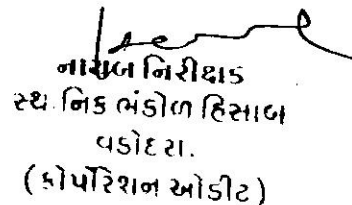 નાયબ નિરીક્ષક
સ્થ. નિક ભંડોળ હિસાબ
વડોદરા.
(કોર્પોરેશન ઓડીટ)